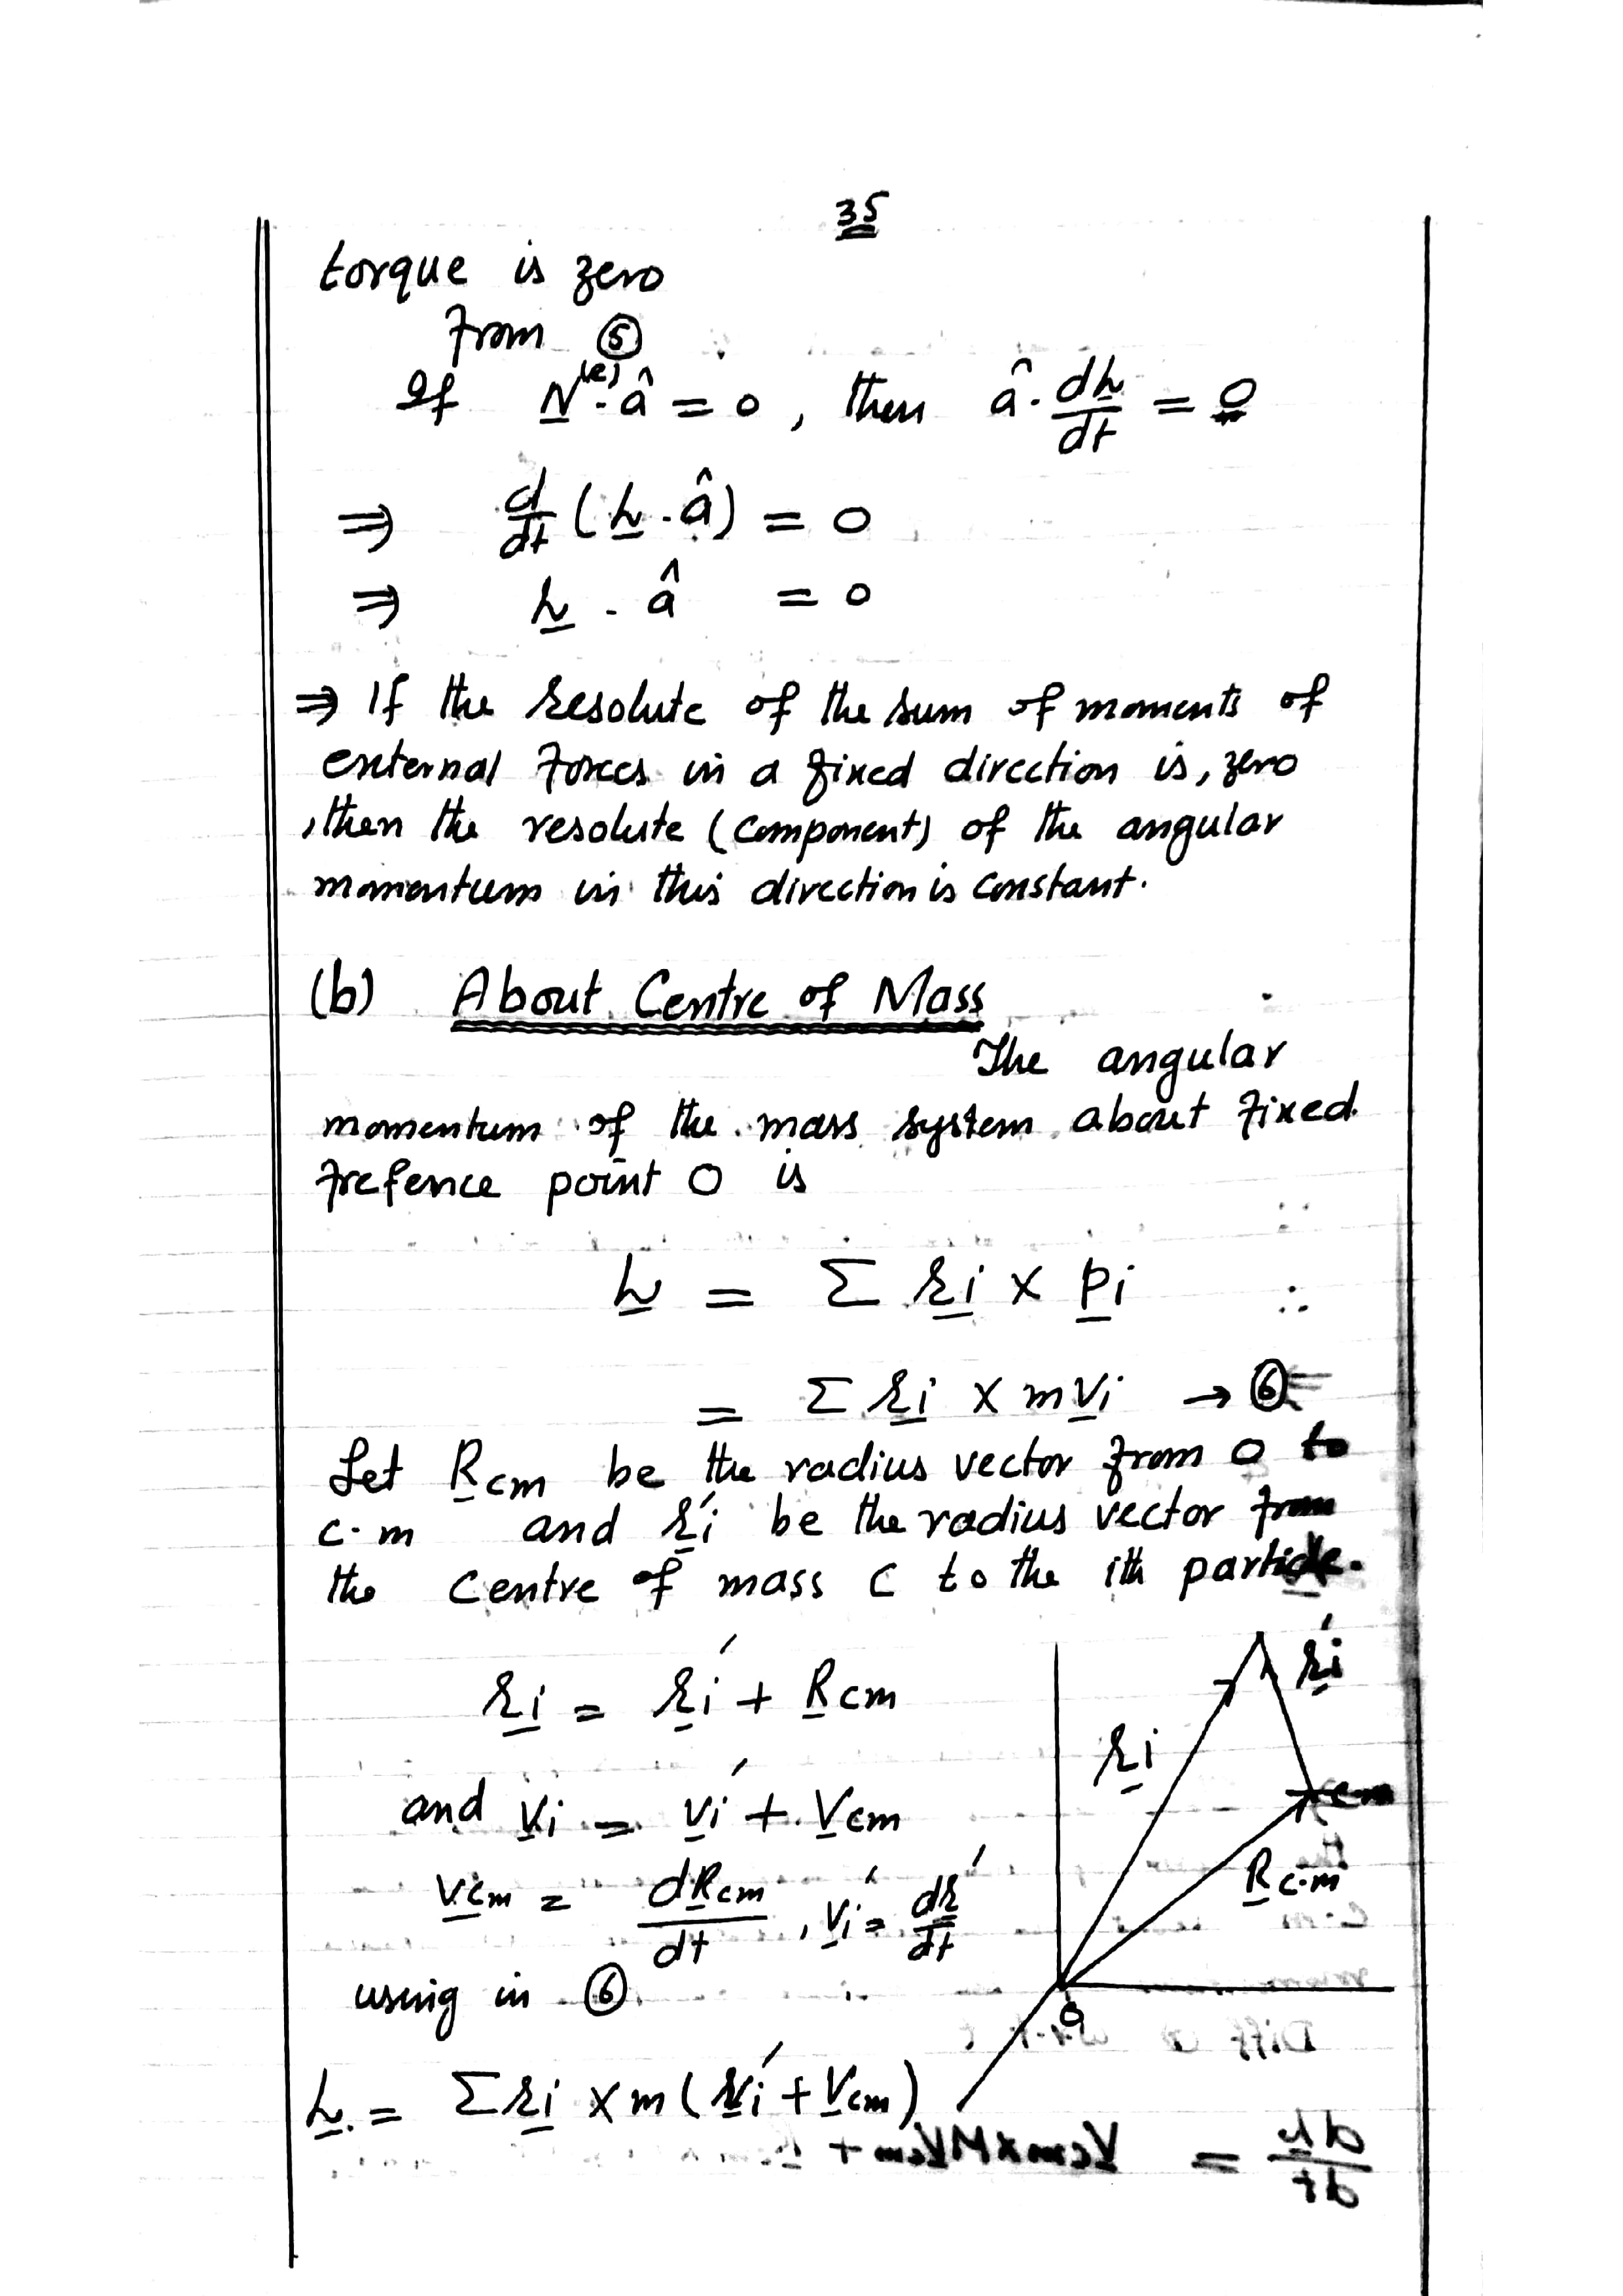 35
torque is zero
From ⑤
If N^(e) . â = 0 , then â . dL/dt = 0
⇒ d/dt ( L . â ) = 0
⇒ L . â = 0
⇒ If the resolute of the sum of moments of
external forces in a fixed direction is, zero
, then the resolute (component) of the angular
momentum in this direction is constant.
(b) About Centre of Mass
The angular
momentum of the mass system about fixed
frefence point O is
L = Σ ri × pi
= Σ ri × m vi → ⑥
Let Rcm be the radius vector from O to
c.m and ri' be the radius vector from
the Centre of mass C to the ith particle.
ri = ri' + Rcm
and vi = vi' + Vcm
Vcm = dRcm/dt , vi' = dr'/dt
using in ⑥
L = Σ ri × m ( vi' + Vcm )
ri
ri'
cm
R c.m
O